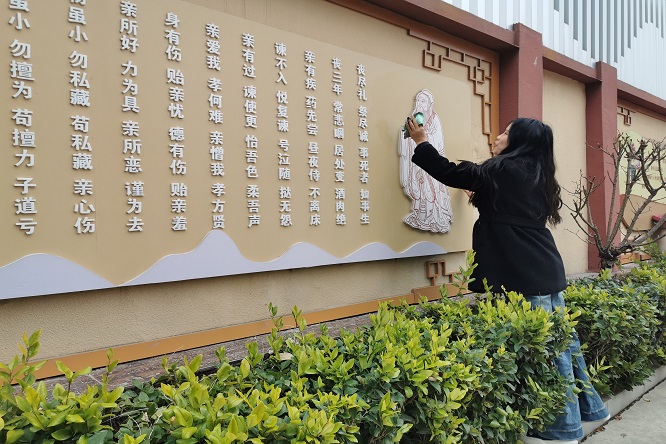 丧尽礼 祭尽诚 事死者 如事生
丧三年 常悲咽 居处变 酒肉绝
亲有疾 药先尝 昼夜侍 不离床
谏不入 悦复谏 号泣随 挞无怨
亲有过 谏使更 怡吾色 柔吾声
亲爱我 孝何难 亲憎我 孝方贤
身有伤 贻亲忧 德有伤 贻亲羞
亲所好 力为具 亲所恶 谨为去
虽小 勿私藏 苟私藏 亲心伤
虽小 勿擅为 苟擅为 子道亏